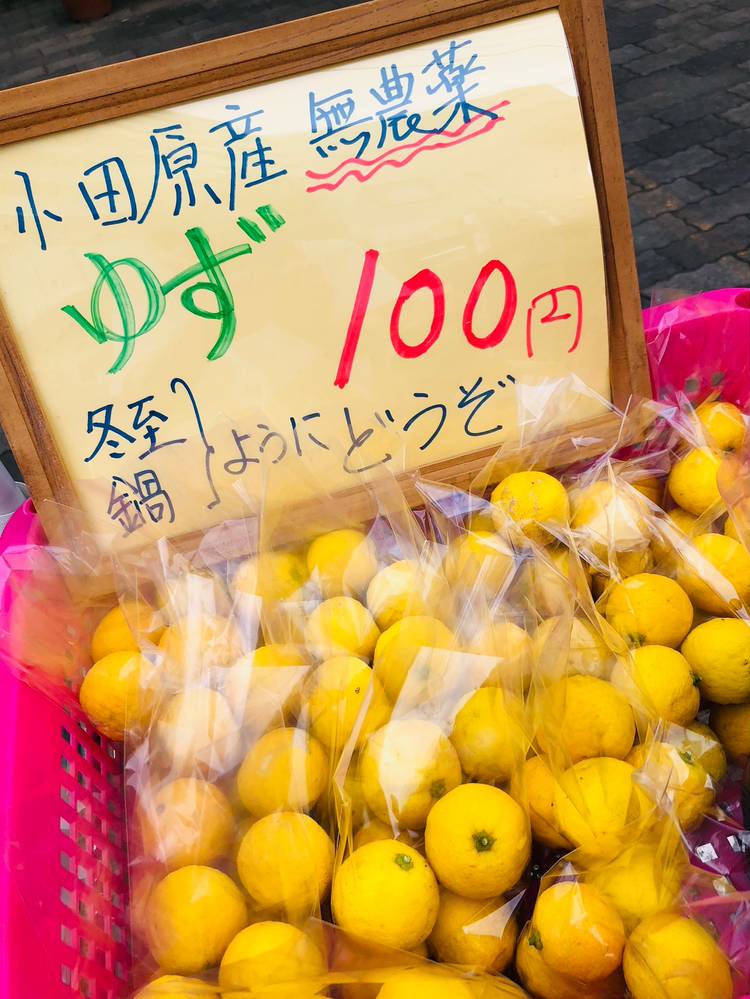 小田原産 無農薬
ゆず 100円
冬至
鍋 } ようにどうぞ